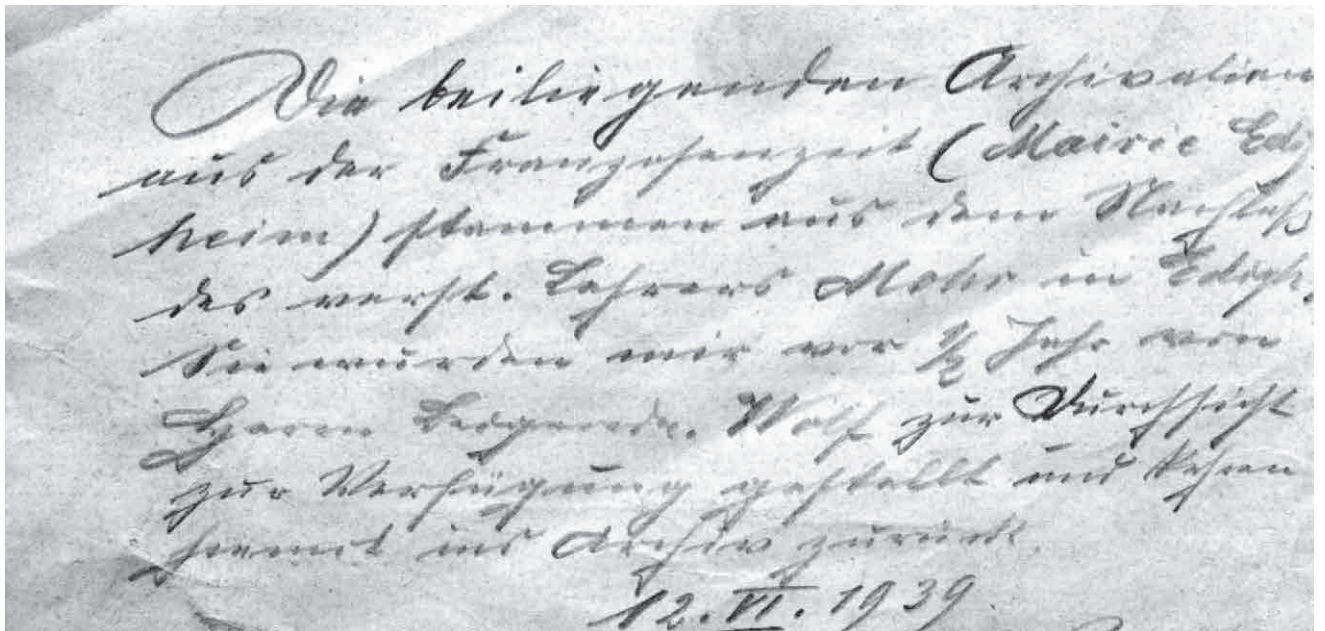 Die beiliegenden Archivalien
aus der Franzosenzeit (Mairie Edig
heim) stammen aus dem Nachlaß
des verst. Lehrers Mohr in Edigh.
Sie wurden mir vor 1/2 Jahr von
Herrn Wolf zur Durchsicht
zur Verfügung gestellt und kehren
hiemit ins Archiv zurück.
12. VI. 1939.